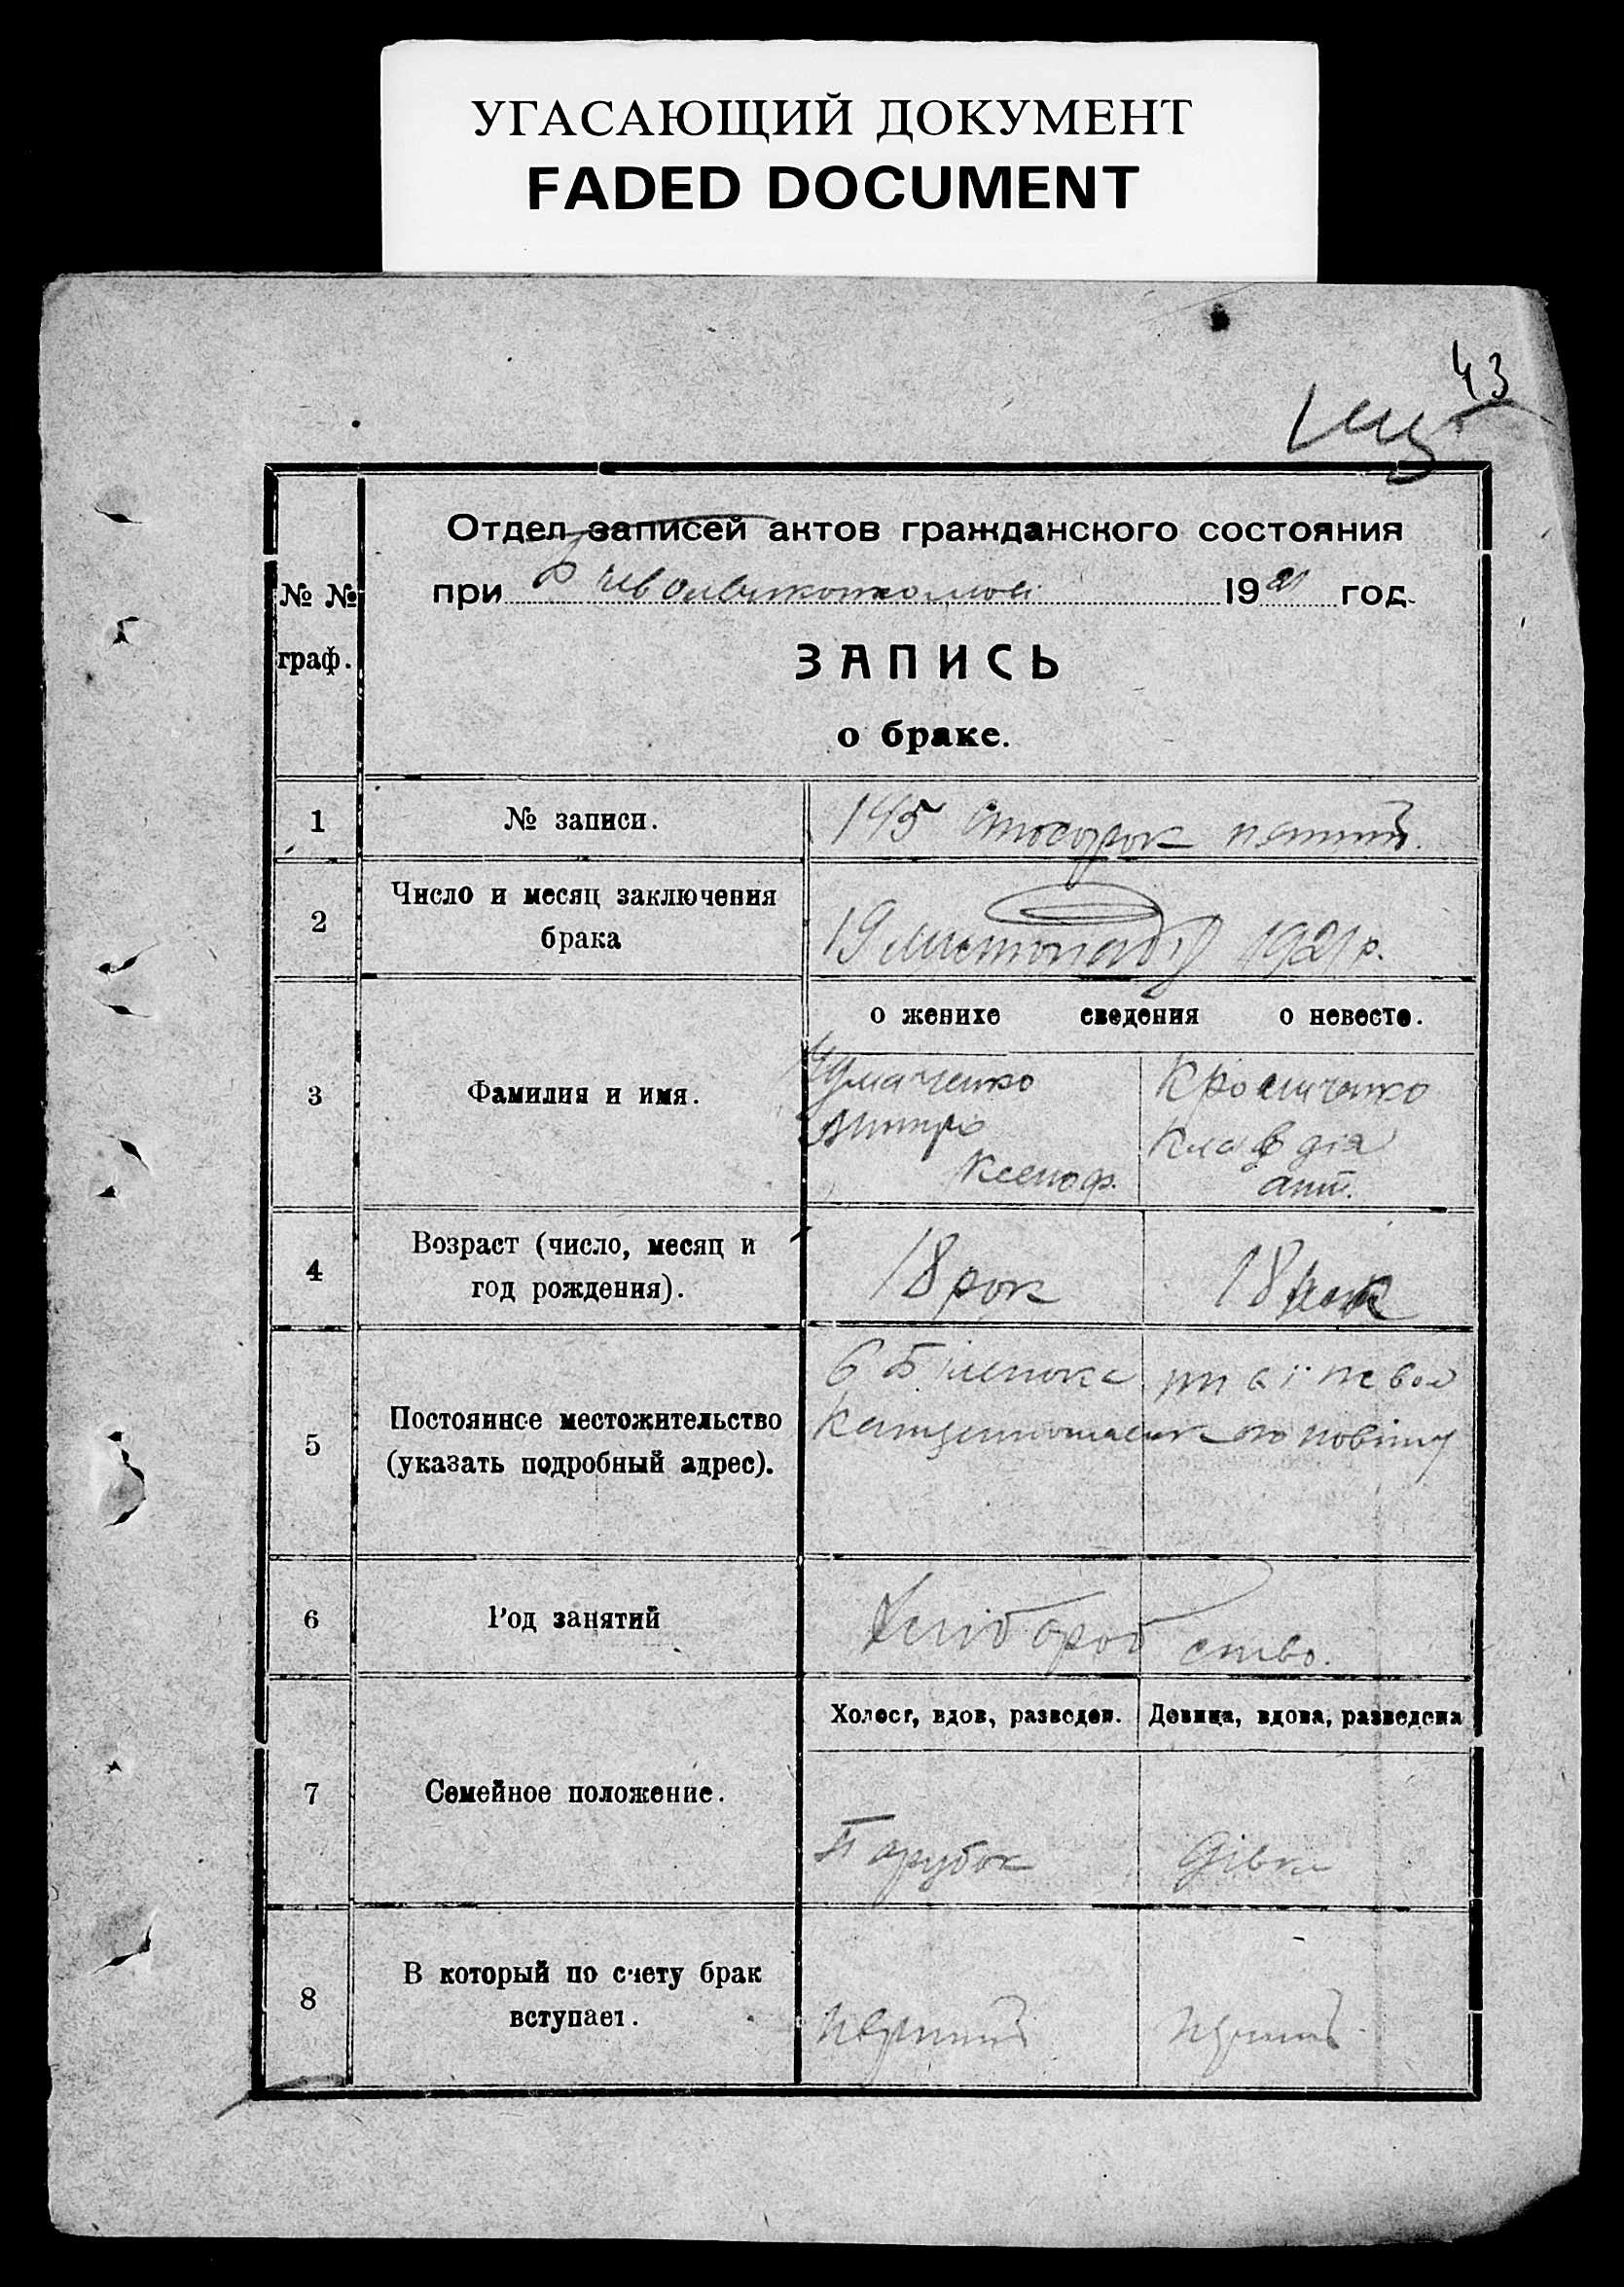 УГАСАЮЩИЙ ДОКУМЕНТ
FADED DOCUMENT
43
Отдел записей актов гражданского состояния
при 1921 год.
№ №
граф.
ЗАПИСЬ
о браке.
1
№ записи.
145 Стосорок пятий.
2
Число и месяц заключения
брака
19 листопада 1921 р.
о женихе сведения о невесте.
3
Фамилия и имя.
Чумаченко
Дмитро
Ксеноф.
Клавдія
Ант.
4
Возраст (число, месяц и
год рождения).
18 рок
18 рок
5
Постоянное местожительство
(указать подробный адрес).
повіту
6
Род занятий
Хліборобство.
7
Семейное положение.
Холост, вдов, разведен.
Девица, вдова, разведена
Парубок
Дівка
8
В который по счету брак
вступает.
перший
перший